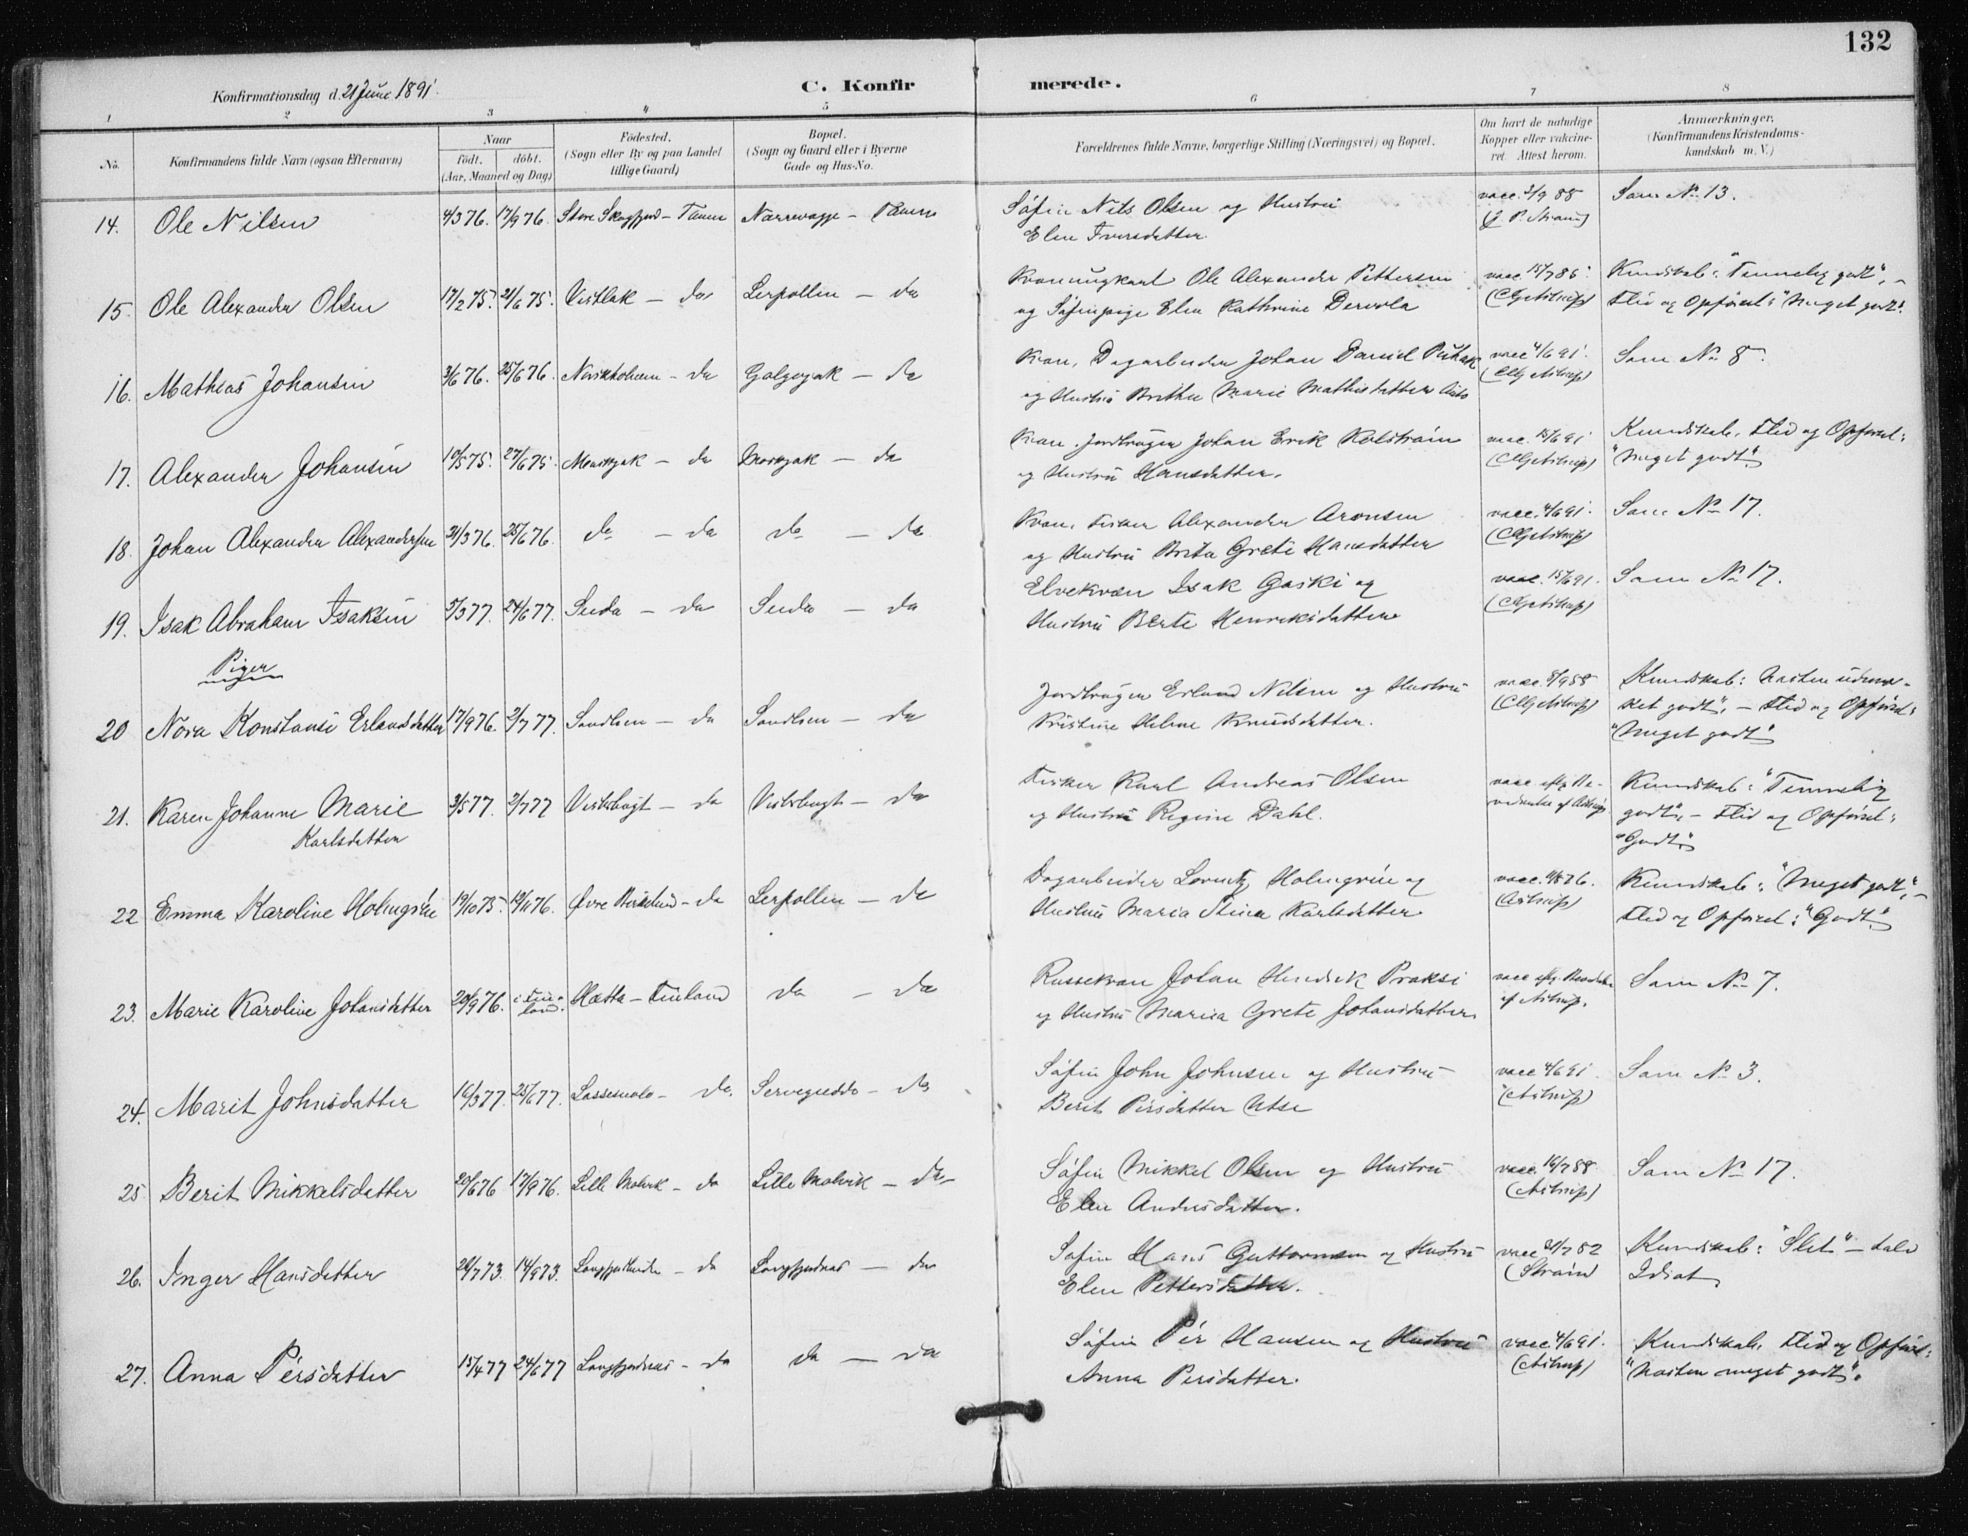 132
Konfirmationsdag d. 21 Juni 1891.
C. Konfirmerede.
1 2 3 4 5 6 7 8
No.
Konfirmandens fulde Navn (ogsaa Efternavn)
Naar
födt. döbt.
(Aar, Maaned og Dag)
Födested.
(Sogn eller By og paa Landet
tillige Gaard)
Bopæl.
(Sogn og Gaard eller i Byerne
Gade og Hus-No.
Forældrenes fulde Navne, borgerlige Stilling (Næringsvei) og Bopæl.
Om havt de naturlige
Kopper eller vakcine-
ret. Attest herom.
Anmærkninger.
(Konfirmandens Kristendoms-
kundskab m. V.)
14. Ole Nilsen 4/3 76. 17/9 76. Store Skogfjord – Tanen Narrevagge – Tanen Søfin Nils Olsen og Hustru vacc. 2/9 88 Som No 13.
Elen Iversdatter.
15. Ole Alexander Olsen 17/2 75. 21/6 75. Vistlak – do Lerpollen – do Kvænungkarl Ole Alexander Pettersen vacc. 15/7 86. Kundskab: "Temmelig godt", –
og Søfinpige Elen Kathrine Dervola (Astrup) Flid og Opførsel: "Meget godt".
16. Mathias Johansen 3/6 76. 25/6 76. Novikholmen – do Golgojok – do Kvæn, Dagarbeider Johan Daniel vacc. 4/6 91. Som No 8.
og Hustru Brithe Marie Mathisdatter (Astrup)
17. Alexander Johansen 10/5 75. 27/6 75. Maskjok – do Maskjok – do Kvæn. Jordbruger Johan Erik Kolström vacc. 15/6 91 Kundskab, Flid og Opførsel:
og Hustru Hansdatter. (Astrup) "Meget godt".
18. Johan Alexander Alexandersen 31/3 76. 25/6 76. do – do do – do Kvæn, Fisker Alexander Aronsen vacc. 4/6 91. Som No 17.
og Hustru Brita Grete Hansdatter (Astrup)
19. Isak Abraham Isaksen 5/3 77. 24/6 77. Seida – do Seida – do Elvekvæn Isak Gaski og vacc. 15/6 91. Som No 17.
Hustru Berte Henriksdatter (Astrup)
Piger
20 Nora Konstanse Erlandsdatter 17/9 76. 2/7 77. Sandlien – do Sandlien – do Jordbruger Erland Nilsen og Hustru vacc. 8/9 88 Kundskab: Næsten udmær-
Kristine Helene Knudsdatter. (Astrup) ket godt", – Flid og Opførsel:
"Meget godt"
21. Karen Johanne Marie 3/5 77. 2/7 77 Vestrbugt – do Vestrbugt – do Fisker Karl Andreas Olsen Kundskab: "Temmelig
Karlsdatter og Hustru Regine Dahl. af Astrup godt", – Flid og Opførsel:
"Godt".
22 Emma Karoline Holmgren 19/10 75. Øvre Birkelund – do Lerpollen – do Dagarbeider Lorentz Holmgren og Kundskab: "Meget godt", –
Hustru Maria Stina Karlsdatter (Astrup) Flid og Opførsel: "Godt".
23. Marie Karoline Johansdatter 20/9 76. i Fin- Hætta – Finland do – do Russekvæn Johan Hendrik Praksi Som No 7.
land. og Hustru Maria Grete Johansdatter. af Astrup.
24. Marit Johnsdatter 16/3 77. 25/6 77. – do. – do Søfin John Johnsen og Hustru vacc 4/6 91. Som No 3.
Berit Persdatter Utse (Astrup)
25 Berit Mikkelsdatter 20/6 76 17/9 76. Lille Molvik – do Lille Molvik – do Søfin Mikkel Olsen og Hustru vacc. 16/7 88. Som No 17.
Elen Andersdatter. (Astrup)
26. Inger Hansdatter 20/7 73. 14/9 73. – do Langfjordnæs – do Søfin Hans Guttormsen og Hustru vacc 21/7 82 Kundskab: "Slet" – halv
Elen Pettersdatter. (Strøm) Idiot.
27. Anna Persdatter 15/4 77 24/6 77 Langfjordnæs – do do – do Søfin Per Hansen og Hustru vacc 4/6 91. Kundskab, Flid og Opførsel:
Anna Persdatter. (Astrup) "Næsten meget godt".